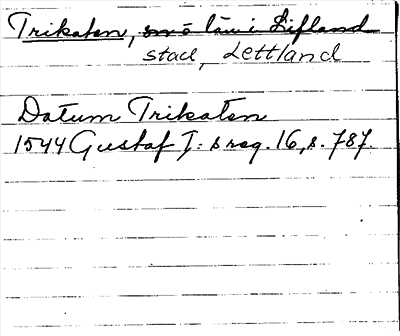 Trikaten, små län i Lifland
stad, Lettland
Datum Trikaten
1544 Gustaf I: s reg. 16, s. 787.